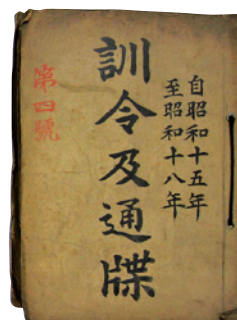 自昭和十五年
至昭和十八年
訓令及通牒
第四號